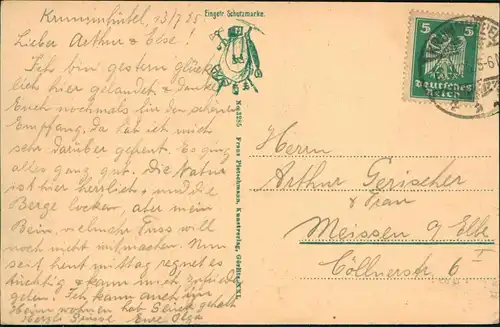 Krummhübel, 23/7 25
Lieber Arthur & Else!
Ich bin gestern glück-
lich hier gelandet & danke
Euch nochmals für den schönen
Empfang. Da hab ich mich
sehr darüber gefreut. Es ging
alles ganz gut. Die Natur
ist hier herrlich, und die
Berge locken, aber mein
Bein, vielmehr Fuss will
noch nicht mitmachen. Nun
seit heut mittag regnet es
tüchtig & kann mich zufrieden
geben. Ich kann auch im
Heim wohnen hab Glück gehabt
Herzl. Grüsse Eure Olga
Eingetr. Schutzmarke.
No. 3255 Franz Pietschmann, Kunstverlag, Görlitz
5 5
Deutsches
Reich
5-6
Herrn
Arthur Gerischer
& Frau
Meissen a/ Elbe
Cöllnerstr. 6 I